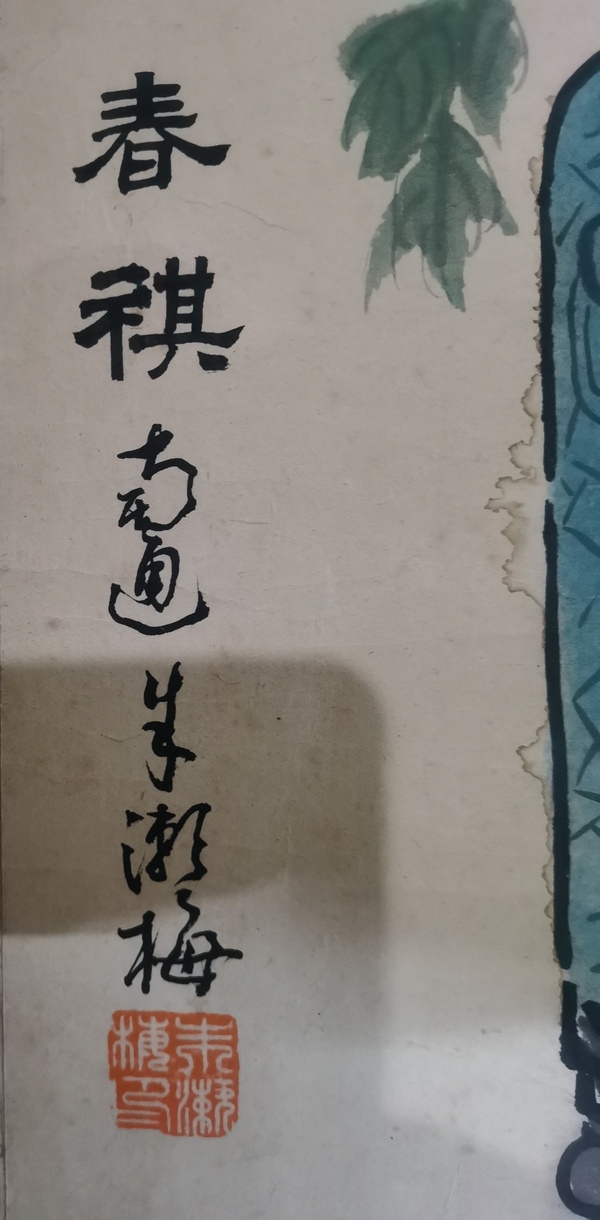 春祺
南通朱漱梅
朱漱
梅印